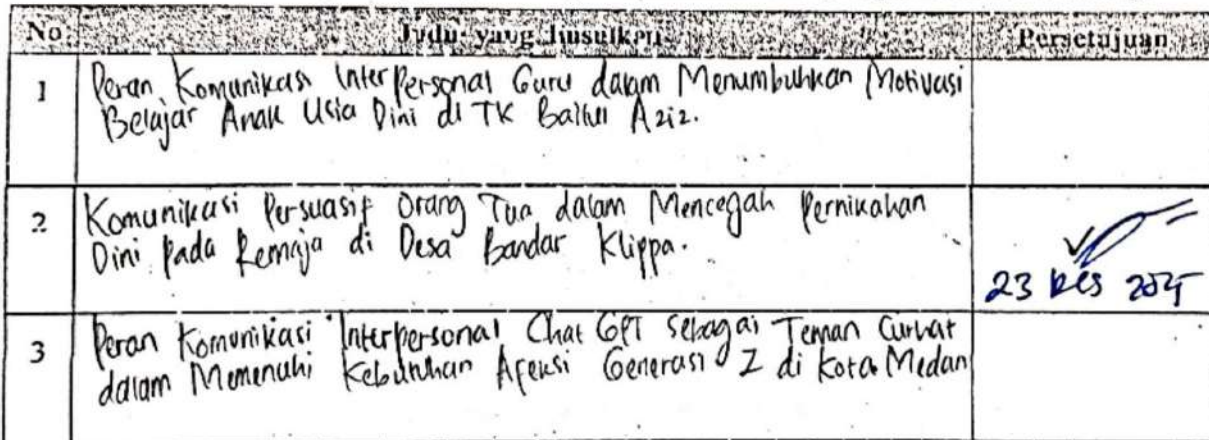 No
Judul yang diusulkan
Persetujuan
1
Peran Komunikasi Interpersonal Guru dalam Menumbuhkan Motivasi
Belajar Anak Usia Dini di TK Baitul Aziz.
2
Komunikasi Persuasif Orang Tua dalam Mencegah Pernikahan
Dini Pada Remaja di Desa Bandar Klippa.
23 Des 2025
3
Peran Komunikasi Interpersonal Chat GPT sebagai Teman Curhat
dalam Memenuhi Kebutuhan Afeksi Generasi Z di Kota Medan